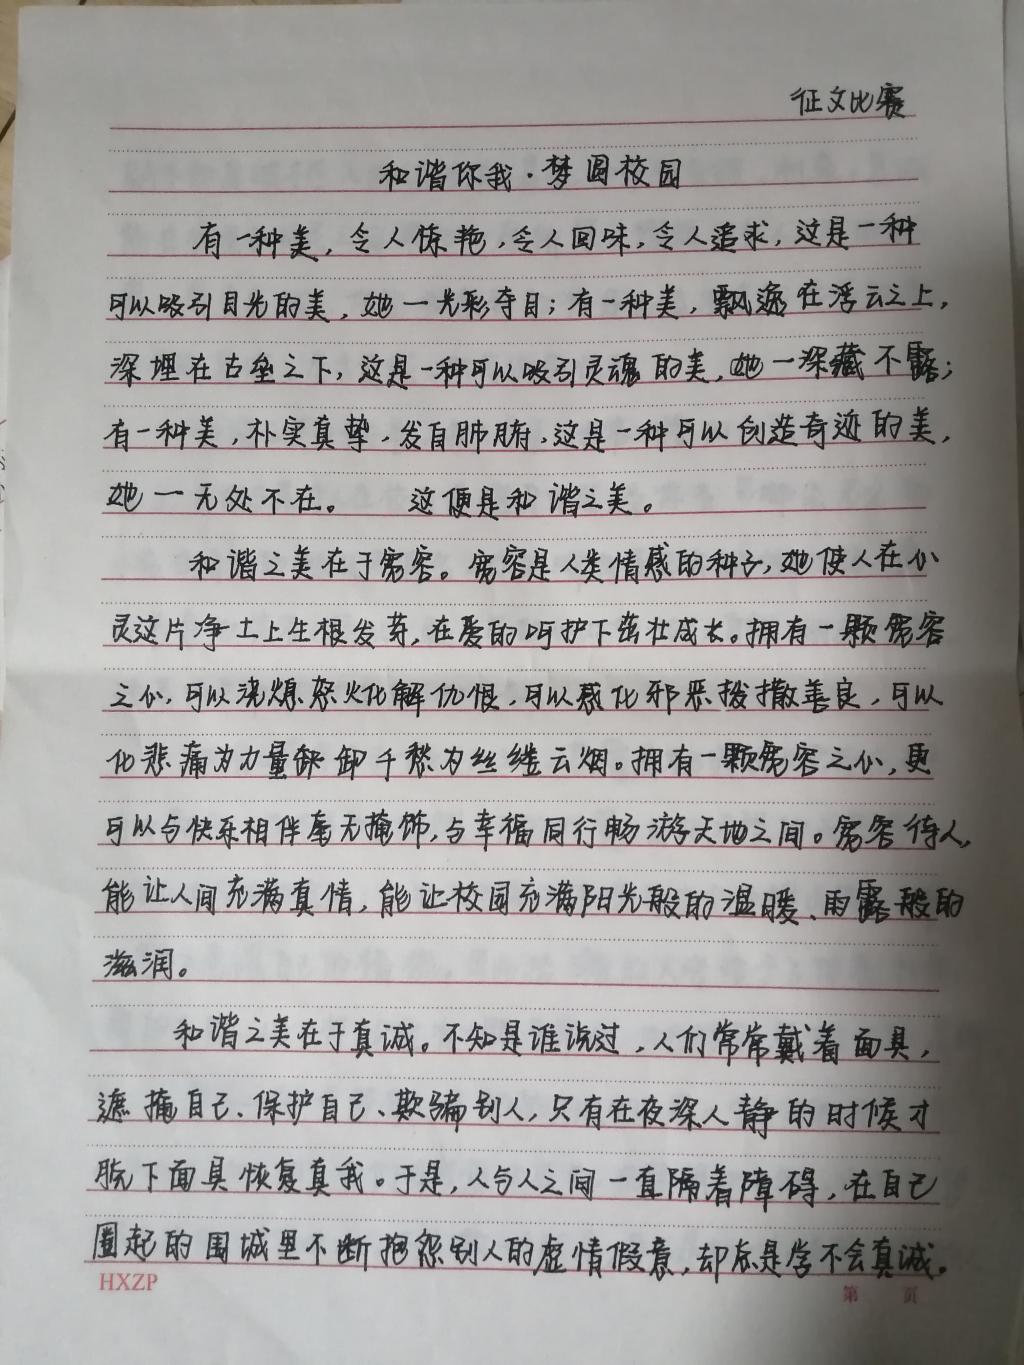 征文比赛
和谐你我·梦圆校园
有一种美，令人惊艳，令人回味，令人追求，这是一种
可以吸引目光的美，她一光彩夺目；有一种美，飘逸在浮云之上，
深埋在古垒之下，这是一种可以吸引灵魂的美，她一深藏不露；
有一种美，朴实真挚，发自肺腑，这是一种可以创造奇迹的美，
她一无处不在。 这便是和谐之美。
和谐之美在于宽容。宽容是人类情感的种子，她使人在心
灵这片净土上生根发芽，在爱的呵护下茁壮成长。拥有一颗宽容
之心，可以浇熄怒火化解仇恨，可以感化邪恶播撒善良，可以
化悲痛为力量卸千愁为丝缕云烟。拥有一颗宽容之心，更
可以与快乐相伴毫无掩饰，与幸福同行畅游天地之间。宽容待人，
能让人间充满真情，能让校园充满阳光般的温暖、雨露般的
滋润。
和谐之美在于真诚。不知是谁说过，人们常常戴着面具，
遮掩自己、保护自己、欺骗别人，只有在夜深人静的时候才
脱下面具恢复真我。于是，人与人之间一直隔着障碍，在自己
圈起的围城里不断抱怨别人的虚情假意，却总是学不会真诚。
HXZP
第 页